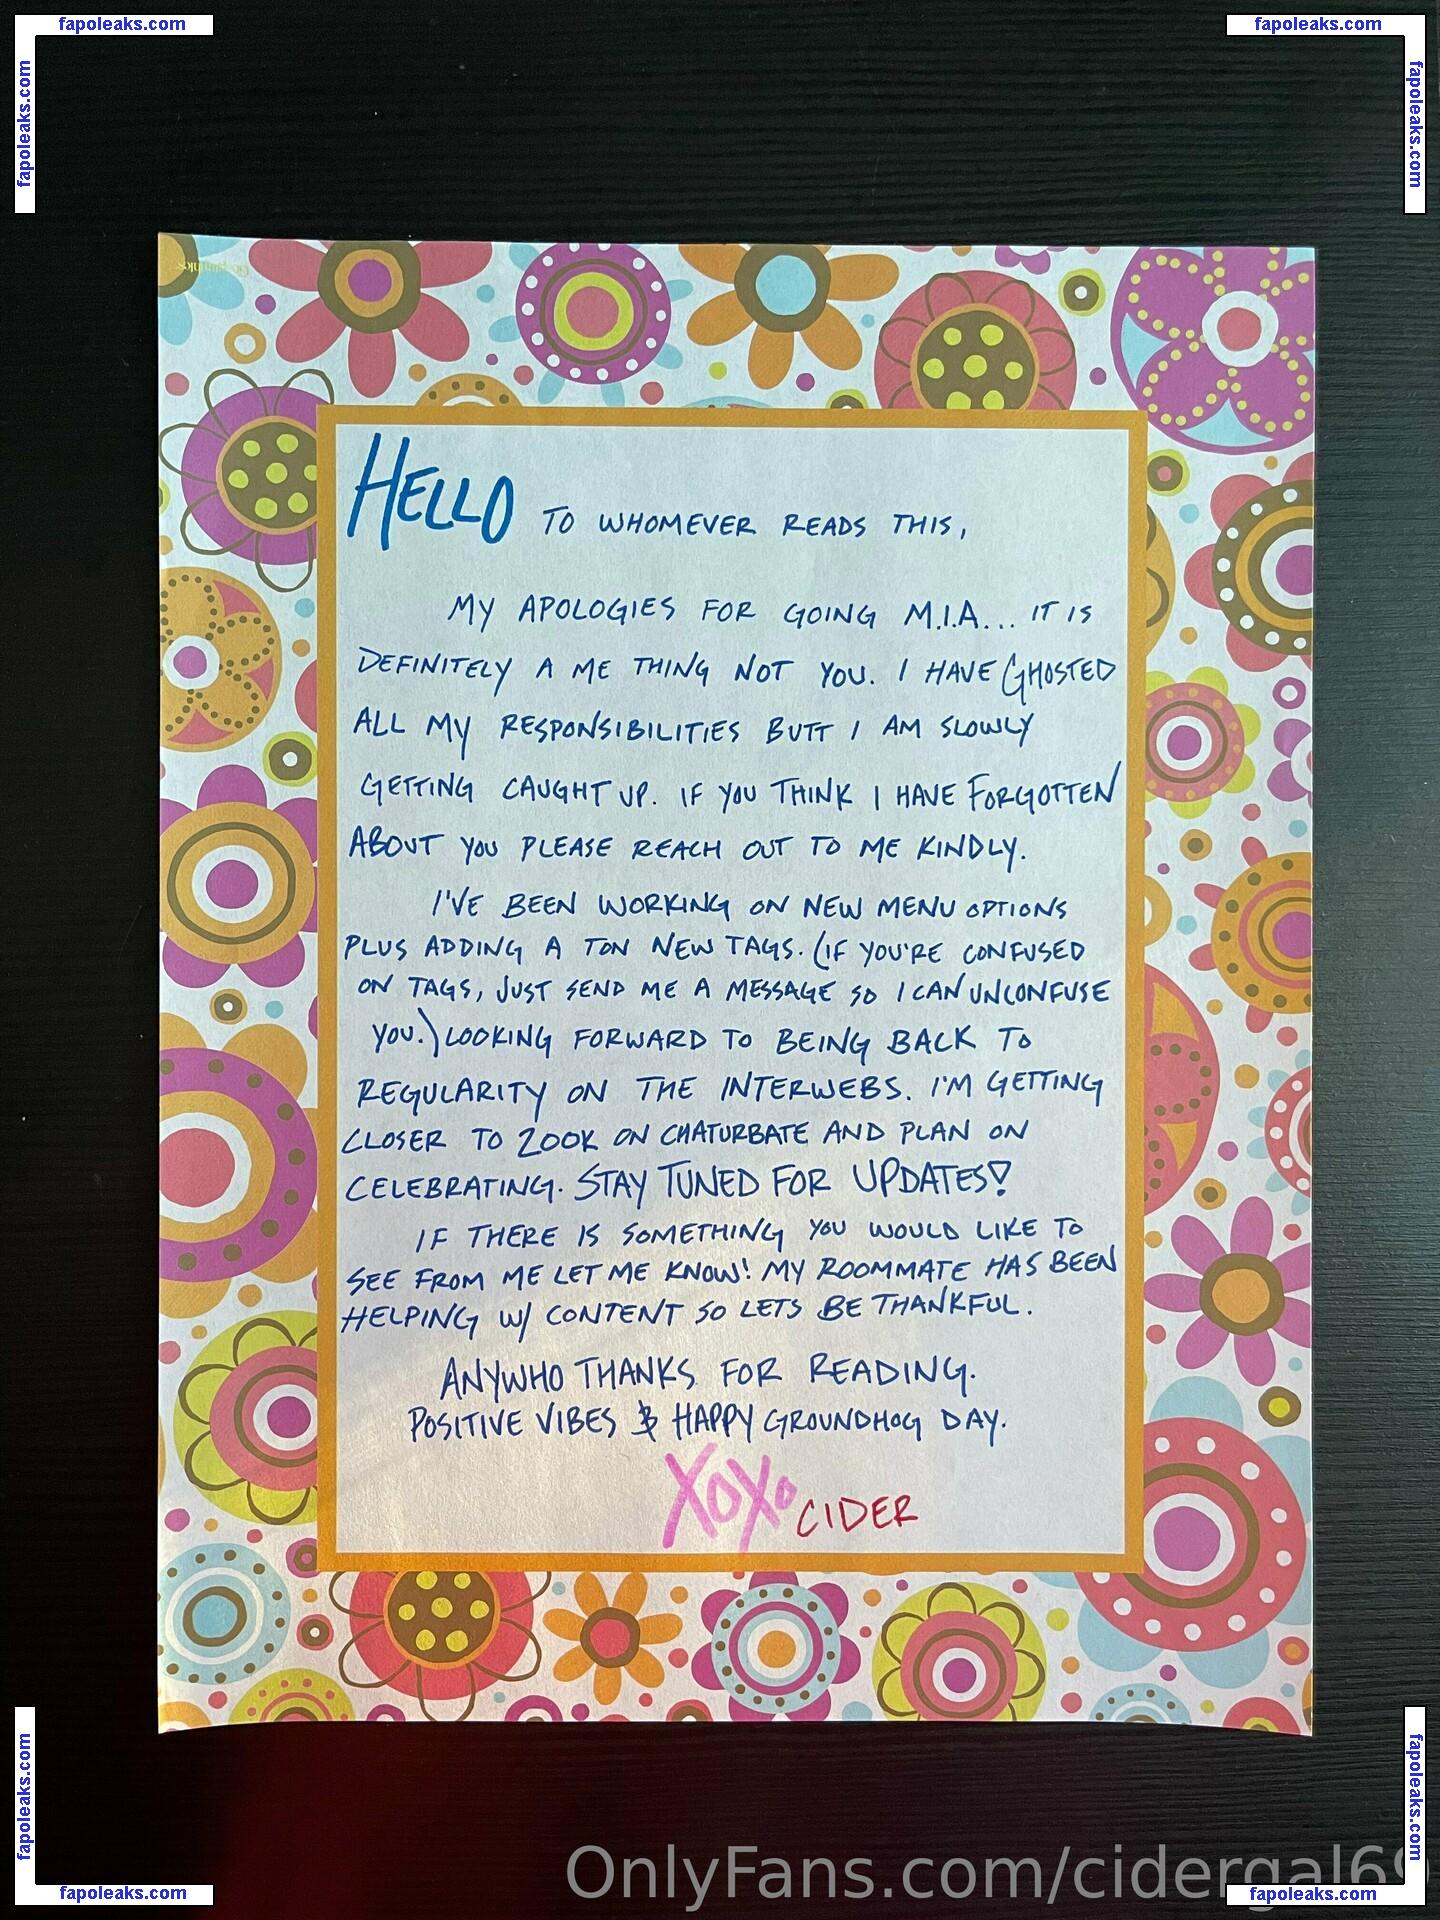 fapoleaks.com
fapoleaks.com
fapoleaks.com
fapoleaks.com
HELLO TO WHOMEVER READS THIS,
MY APOLOGIES FOR GOING M.I.A... IT IS
DEFINITELY A ME THING NOT YOU. I HAVE GHOSTED
ALL MY RESPONSIBILITIES BUTT I AM SLOWLY
GETTING CAUGHT UP. IF YOU THINK I HAVE FORGOTTEN
ABOUT YOU PLEASE REACH OUT TO ME KINDLY.
I'VE BEEN WORKING ON NEW MENU OPTIONS
PLUS ADDING A TON NEW TAGS. (IF YOU'RE CONFUSED
ON TAGS, JUST SEND ME A MESSAGE SO I CAN UNCONFUSE
YOU.) LOOKING FORWARD TO BEING BACK TO
REGULARITY ON THE INTERWEBS. I'M GETTING
CLOSER TO 200K ON CHATURBATE AND PLAN ON
CELEBRATING. STAY TUNED FOR UPDATES!
IF THERE IS SOMETHING YOU WOULD LIKE TO
SEE FROM ME LET ME KNOW! MY ROOMMATE HAS BEEN
HELPING W/ CONTENT SO LETS BE THANKFUL.
ANYWHO THANKS FOR READING.
POSITIVE VIBES & HAPPY GROUNDHOG DAY.
XOXO CIDER
fapoleaks.com
fapoleaks.com
OnlyFans.com/cidergal69
fapoleaks.com
fapoleaks.com